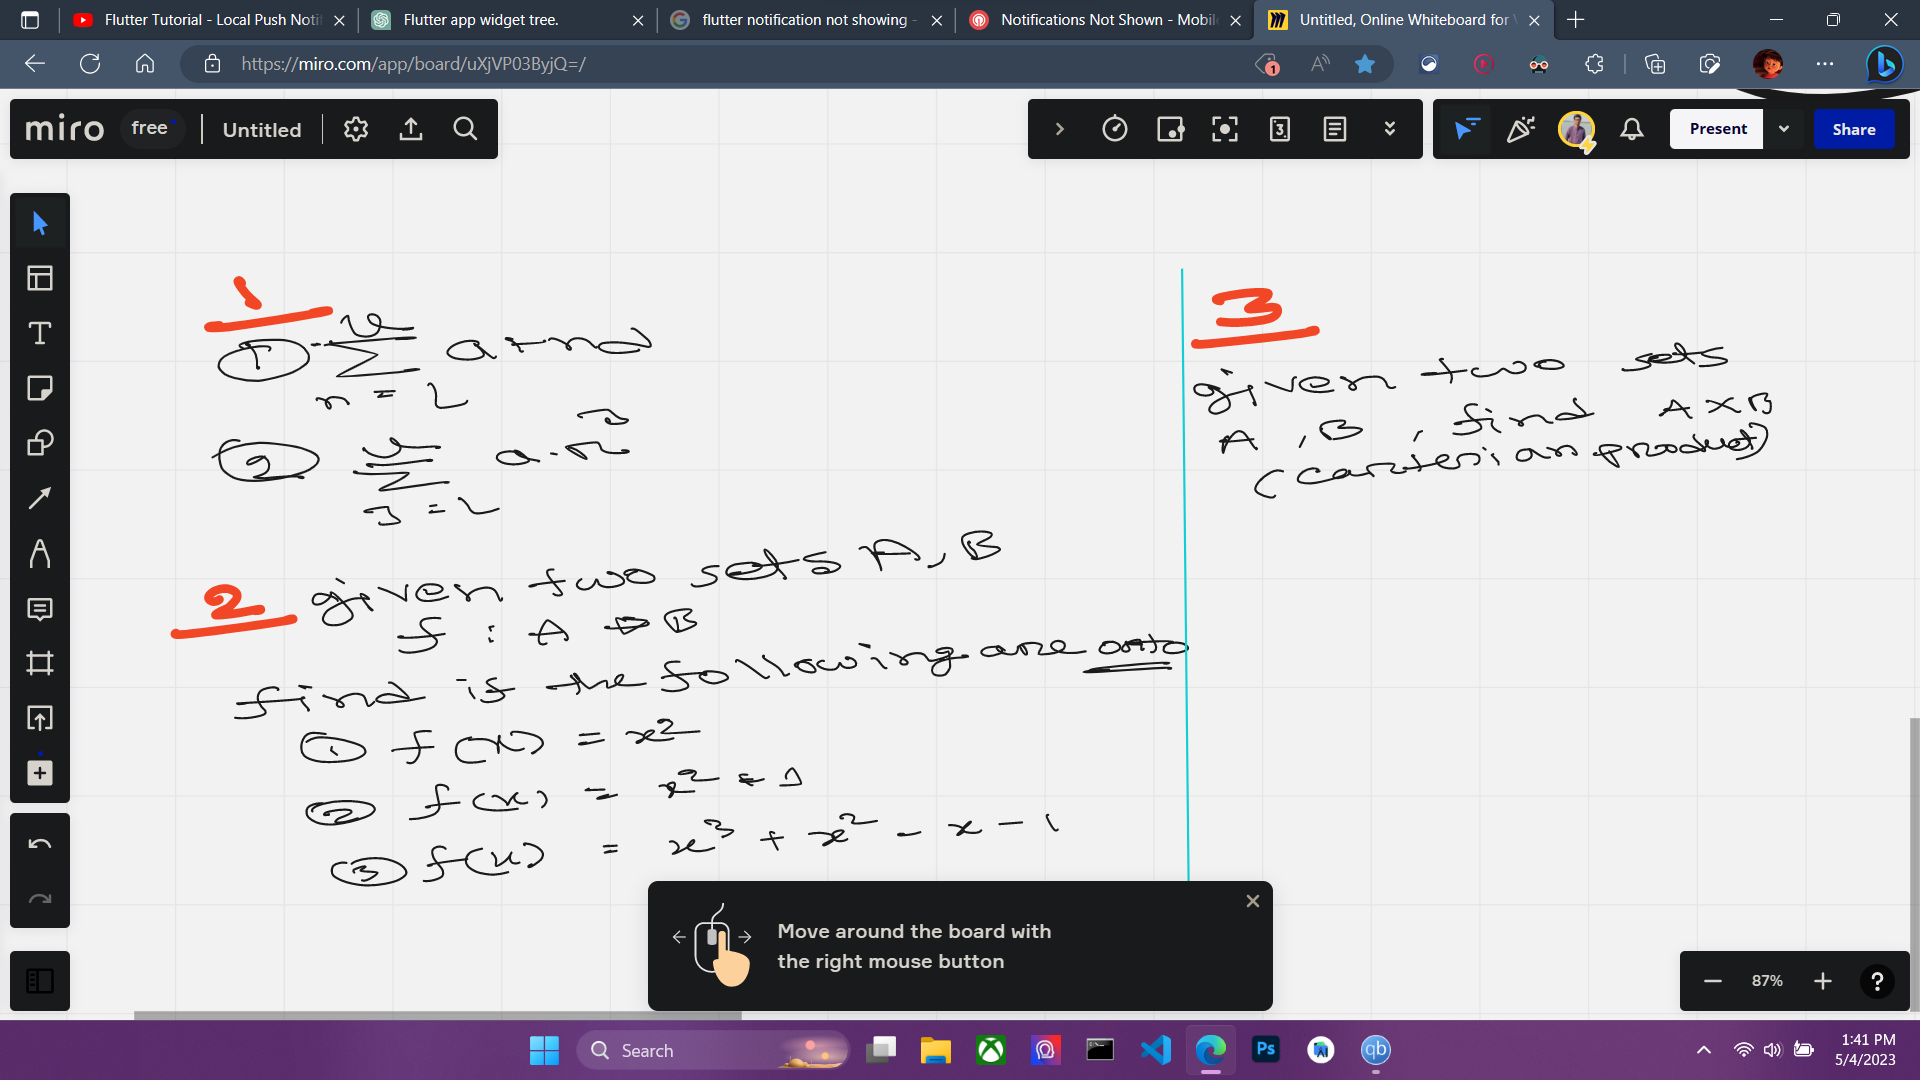 Flutter Tutorial - Local Push Notifi
Flutter app widget tree.
flutter notification not showing -
Notifications Not Shown - Mobile
Untitled, Online Whiteboard for
https://miro.com/app/board/uXjVP03ByjQ=/
miro free Untitled
Present
Share
1
① Σ a+nd
n = 1
② Σ
j = 1
2 given two sets A, B
f : A → B
find if the following are onto
① f(x) = x²
② f(x) = x²
③ f(x) = x³ + x² - x - 1
3
given two sets
A , B , find A X B
(cartesian product)
Move around the board with
the right mouse button
87%
Search
1:41 PM
5/4/2023